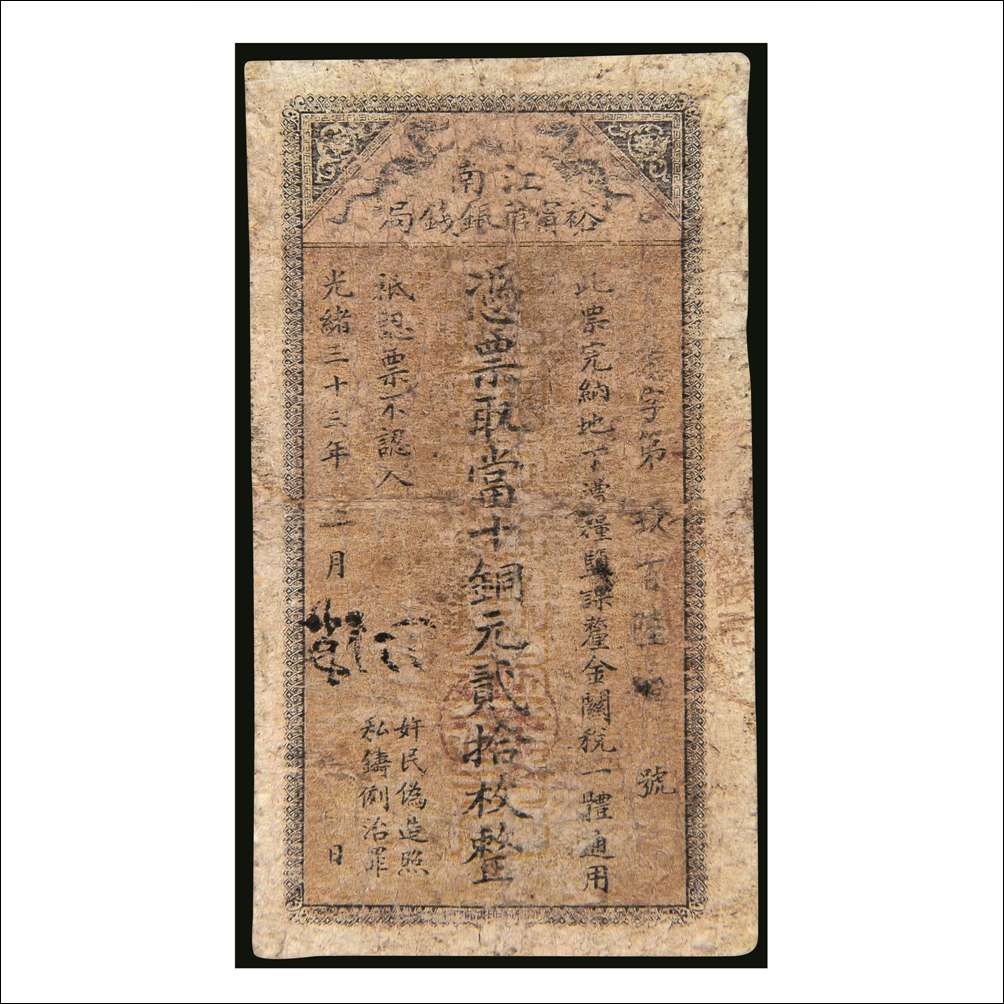 江南
裕甯官銀錢局
字第 玖百陸拾 號
此票完納地丁漕糧鹽課釐金關稅一體通用
憑票取當十銅元貳拾枚整
紙認票不認人
奸民偽造照
私鑄例治罪
光緒三十三年 月 日